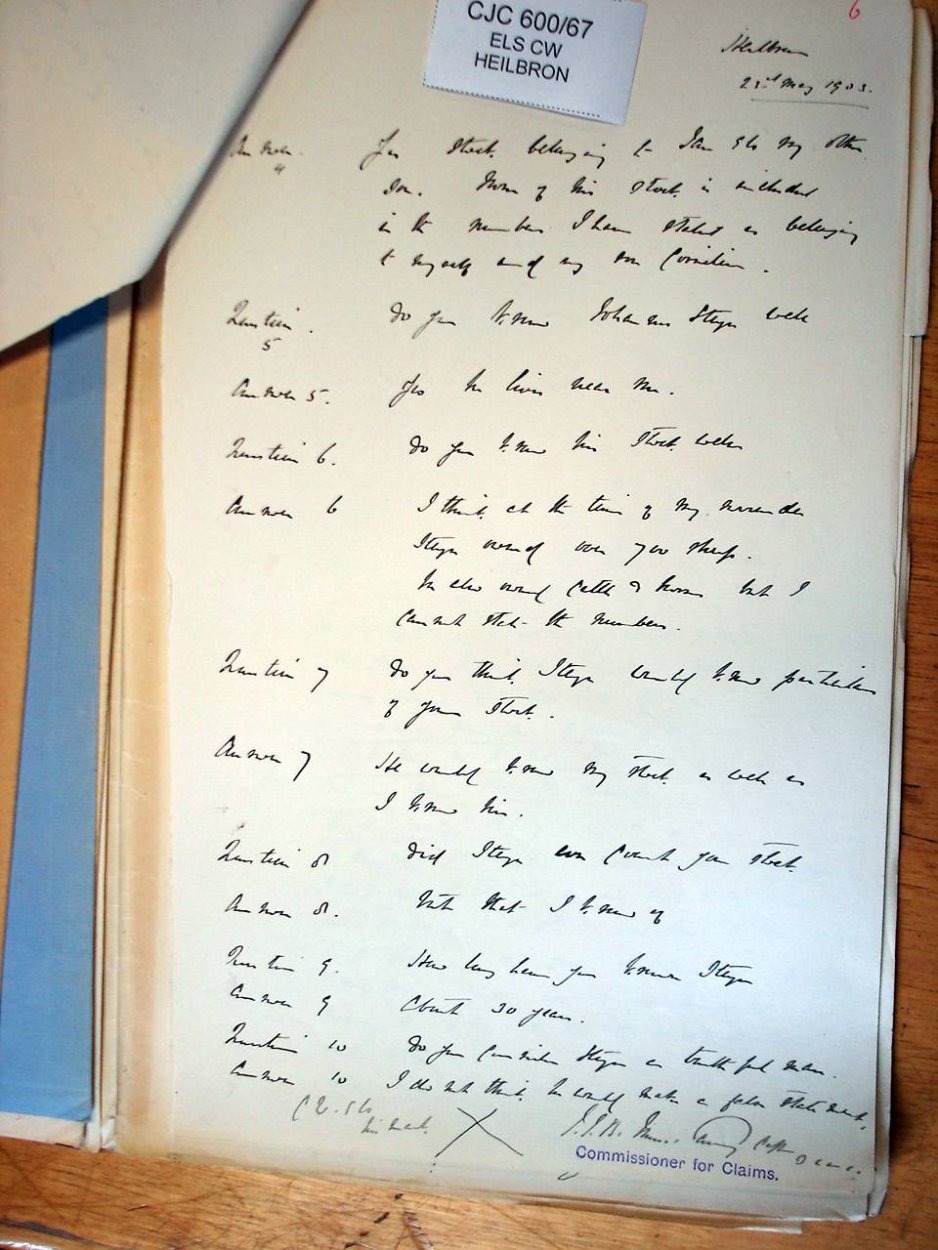 6
CJC 600/67
ELS CW
HEILBRON
Heilbron
23rd May 1903.
Answer
4
Yes stock belonging to Jan Els my other
son. None of his stock is included
in the numbers I have stated as belonging
to myself and my son Cornelius.
Question.
5
Do you know Johannes Steyn well
Answer 5.
Yes he lives near me.
Question 6.
Do you know his stock well
Answer 6
I think at the time of my surrender
Steyn owned over 700 sheep.
He also owned cattle & horses but I
cannot state the numbers.
Question 7
Do you think Steyn would know particulars
of your stock.
Answer 7
He would know my stock as well as
I know his.
Question 8
Did Steyn ever count your stock
Answer 8.
Not that I know of
Question 9.
How long have you known Steyn
Answer 9
About 30 years.
Question 10
Do you consider Steyn a truthful man.
Answer 10
I do not think he would make a false statement.
C W. Els
his mark. X
Capt
Commissioner for Claims.